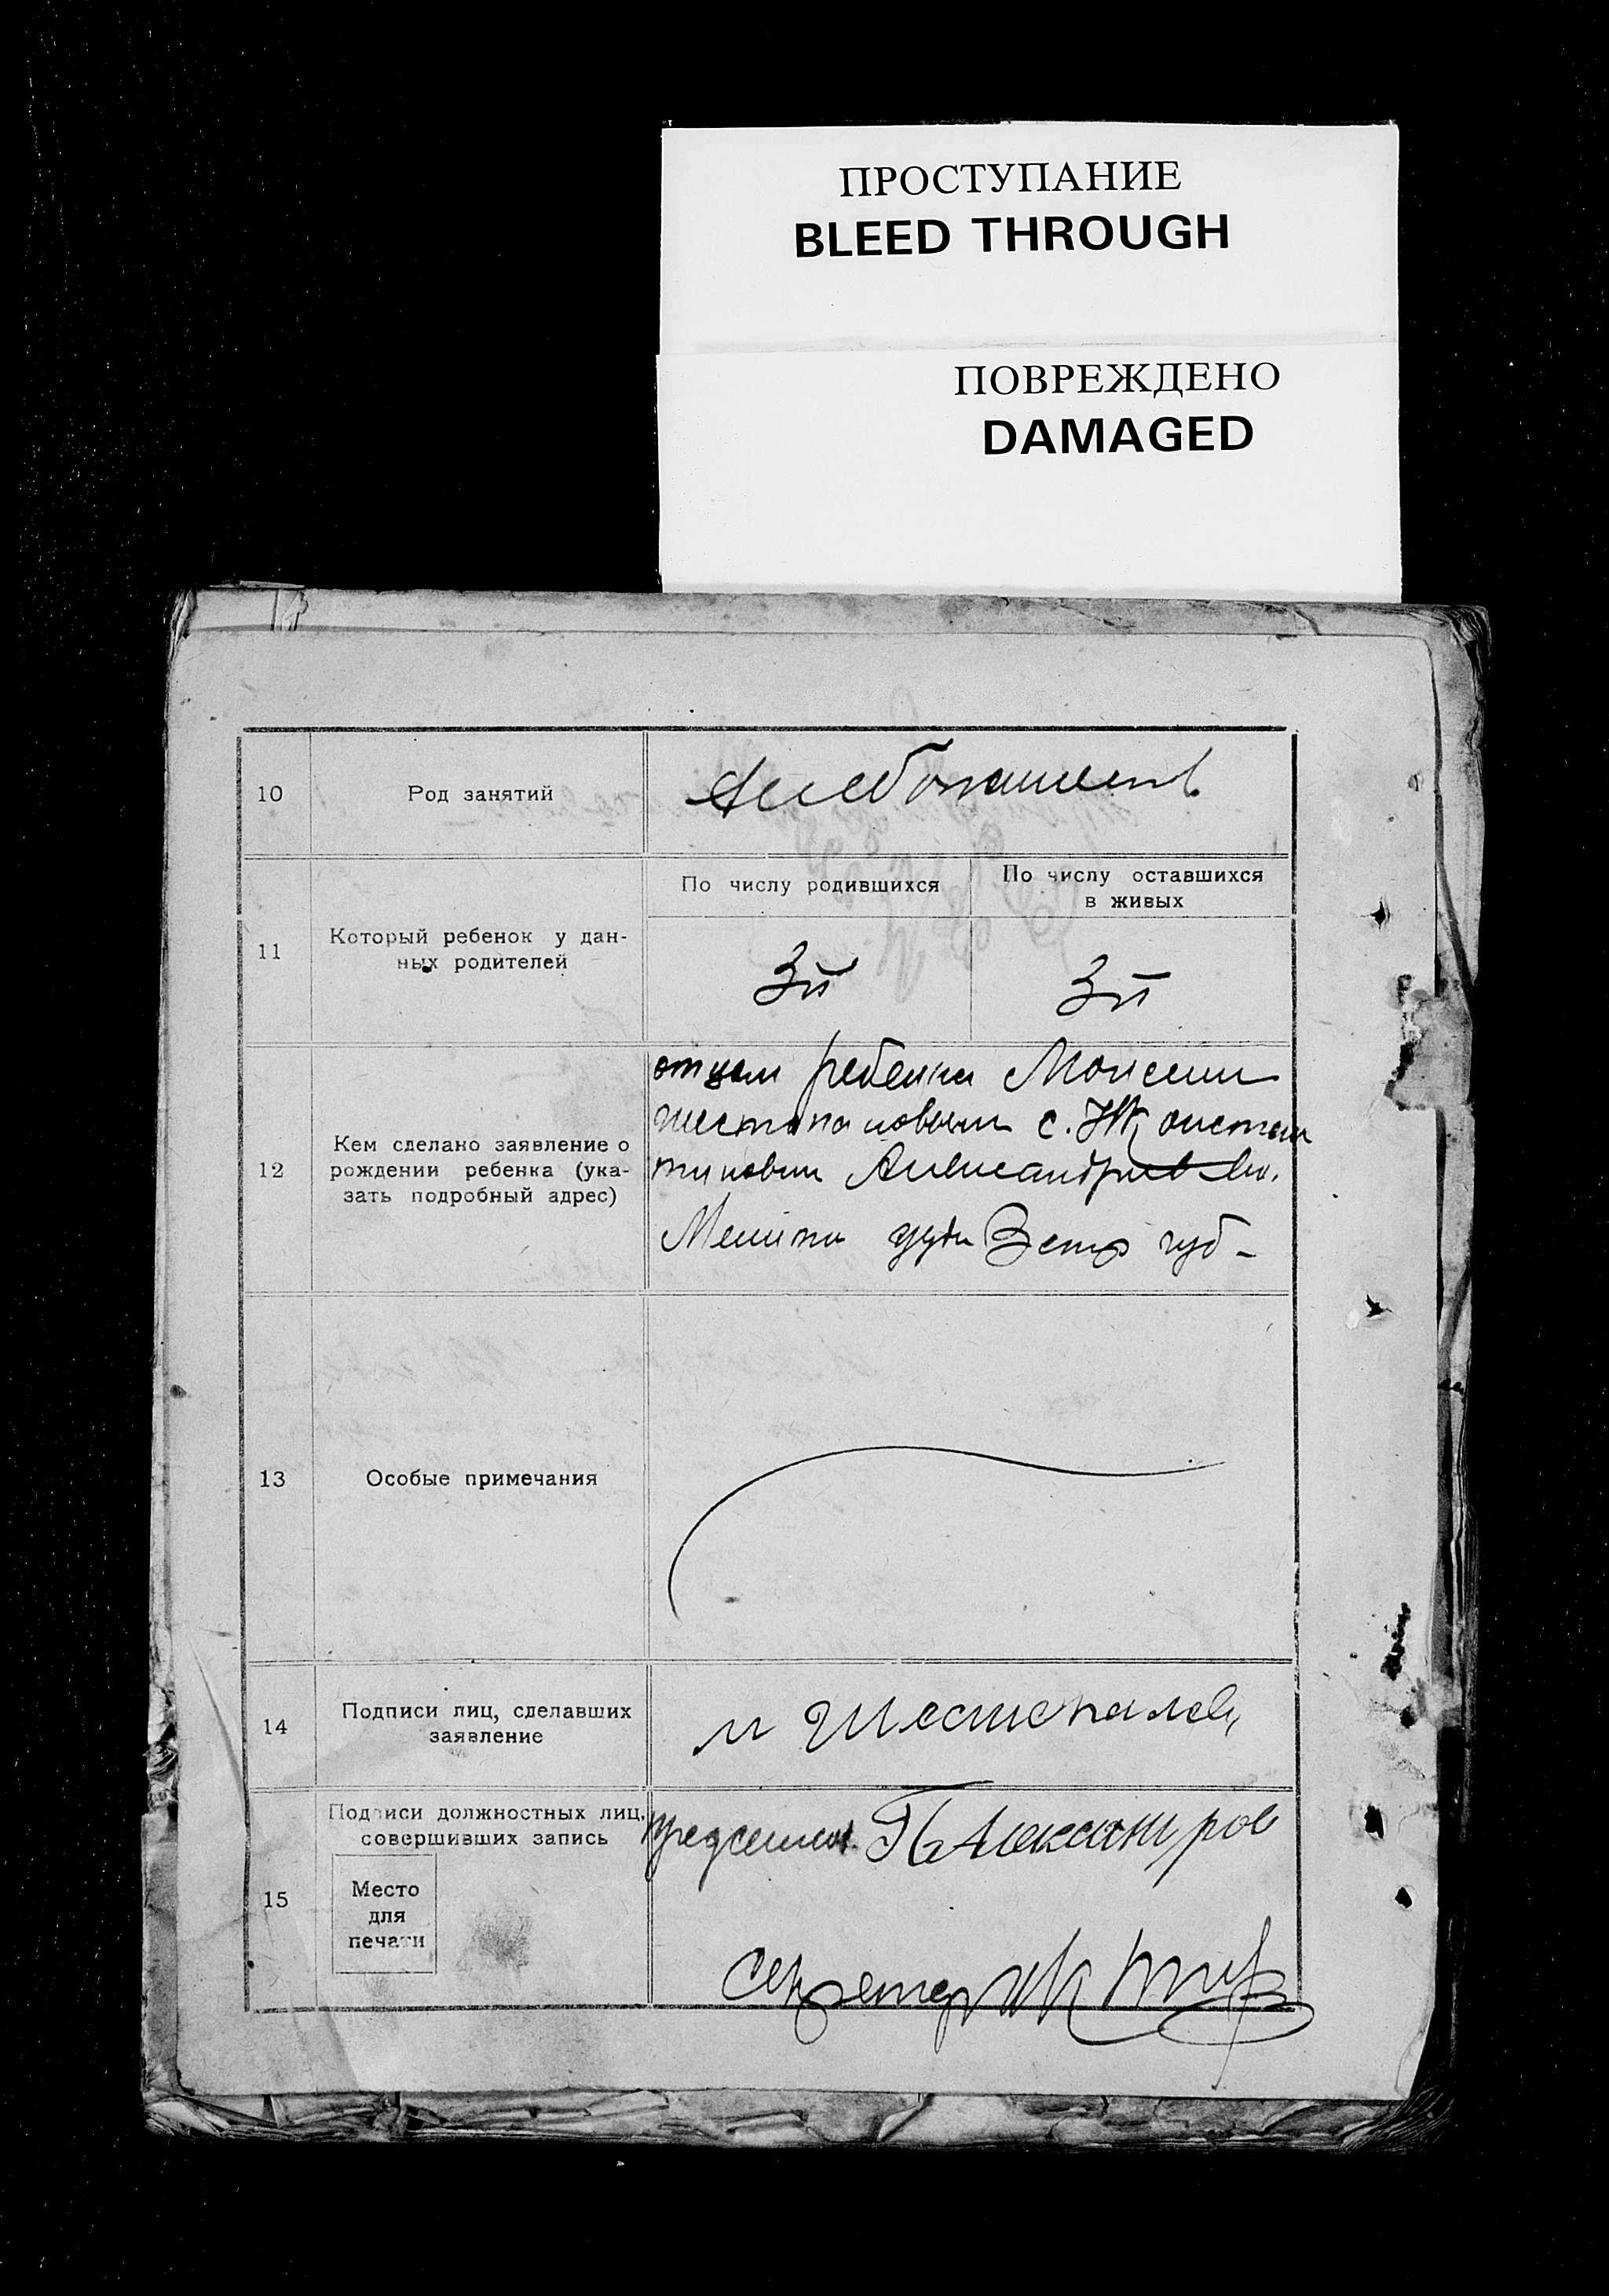 ПРОСТУПАНИЕ
BLEED THROUGH
ПОВРЕЖДЕНО
DAMAGED
10
Род занятий
Хлебопашест.
11
Который ребенок у дан-
ных родителей
По числу родившихся
По числу оставшихся
в живых
3й
3й
12
Кем сделано заявление о
рождении ребенка (ука-
зать подробный адрес)
отцом ребенка Моисеем
Шестопаловым с.
Александрие
губ-
13
Особые примечания
14
Подписи лиц, сделавших
заявление
м Шестопалов
15
Подписи должностных лиц,
совершивших запись
Место
для
печати
Предсетат. Александров
Секретарь